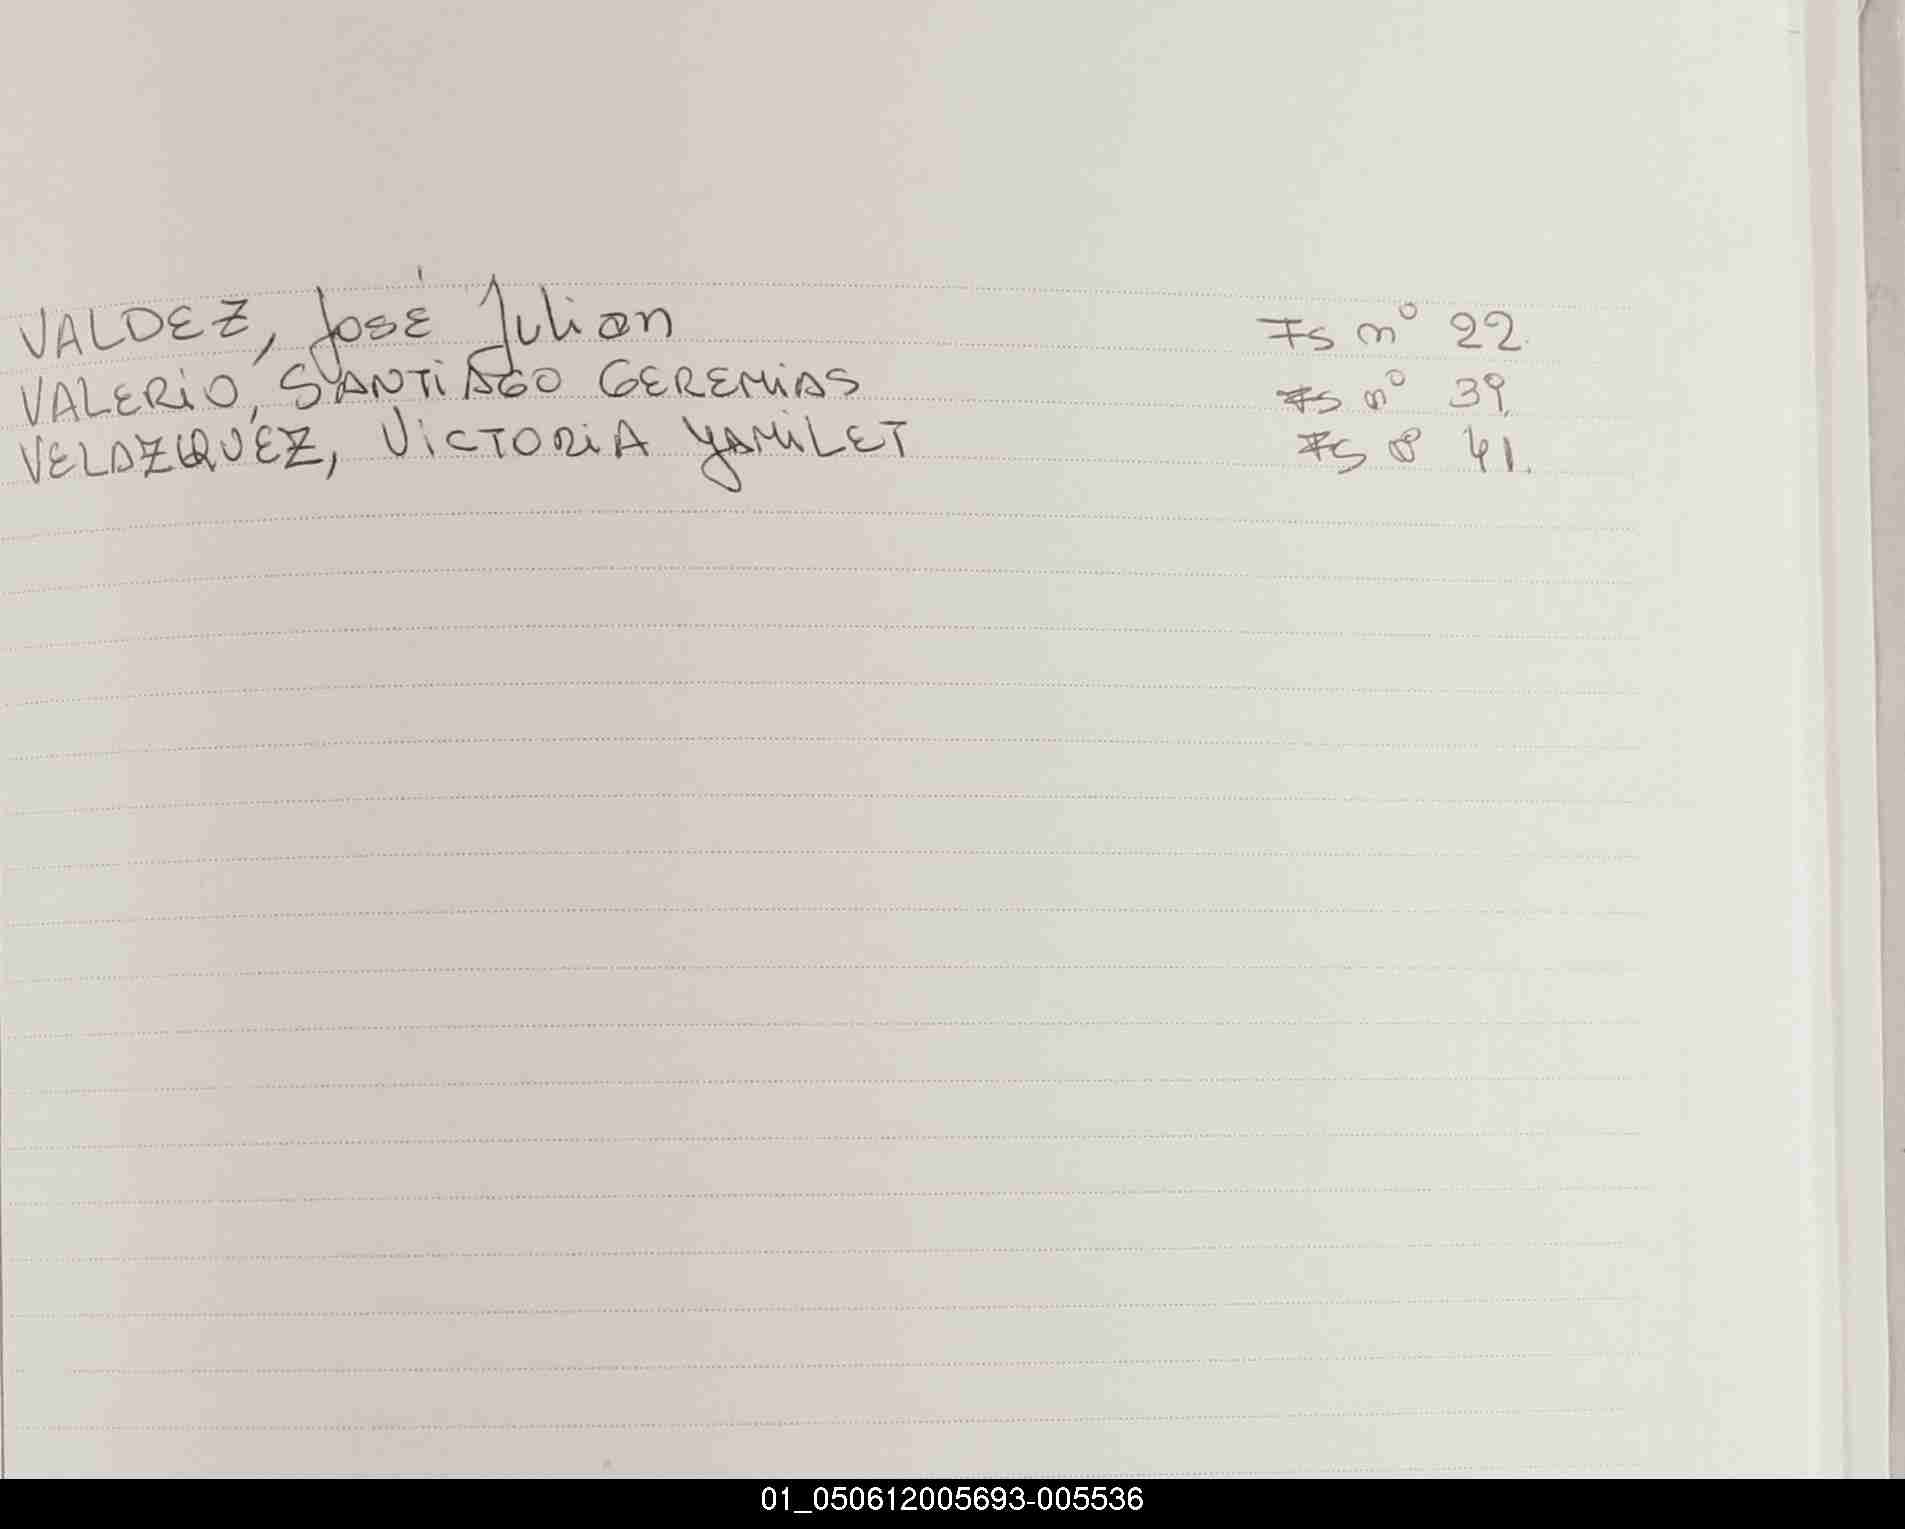 VALDEZ, José Julian Fs nº 22.
VALERiO, SANTiAGO GEREMiAS Fs nº 39.
VELAZQUEZ, ViCTORiA YAMiLET Fs nº 41.
01_050612005693-005536